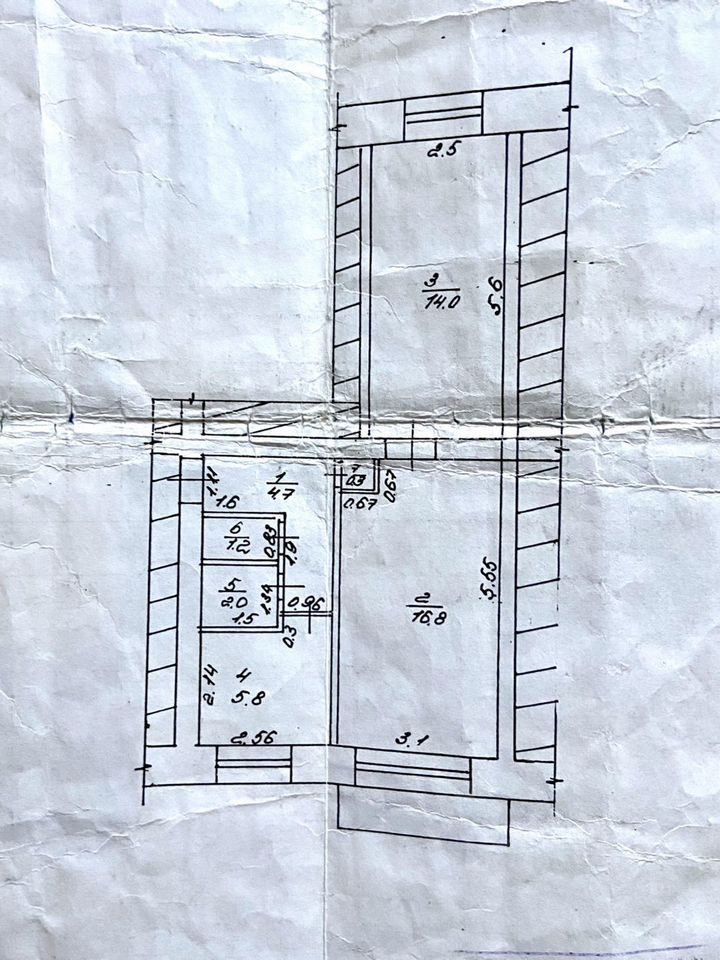 2.5
3
14.0
5.6
1
4.7
1.11
1.6
7
0.3
0.67
0.67
6
1.2
0.83
1.9
5
2.0
1.34
1.5
0.96
0.3
2
16.8
5.65
4
5.8
2.14
2.56
3.1